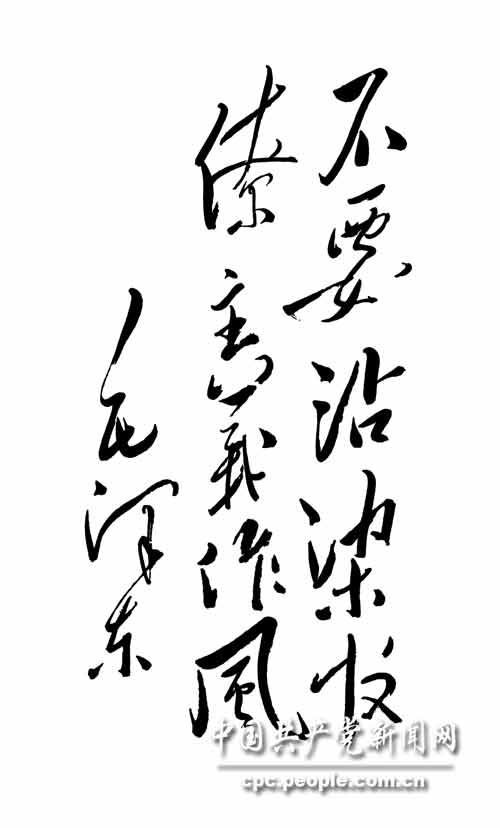 不要沾染官
僚主義作風
毛泽东
中国共产党新闻网
cpc.people.com.cn